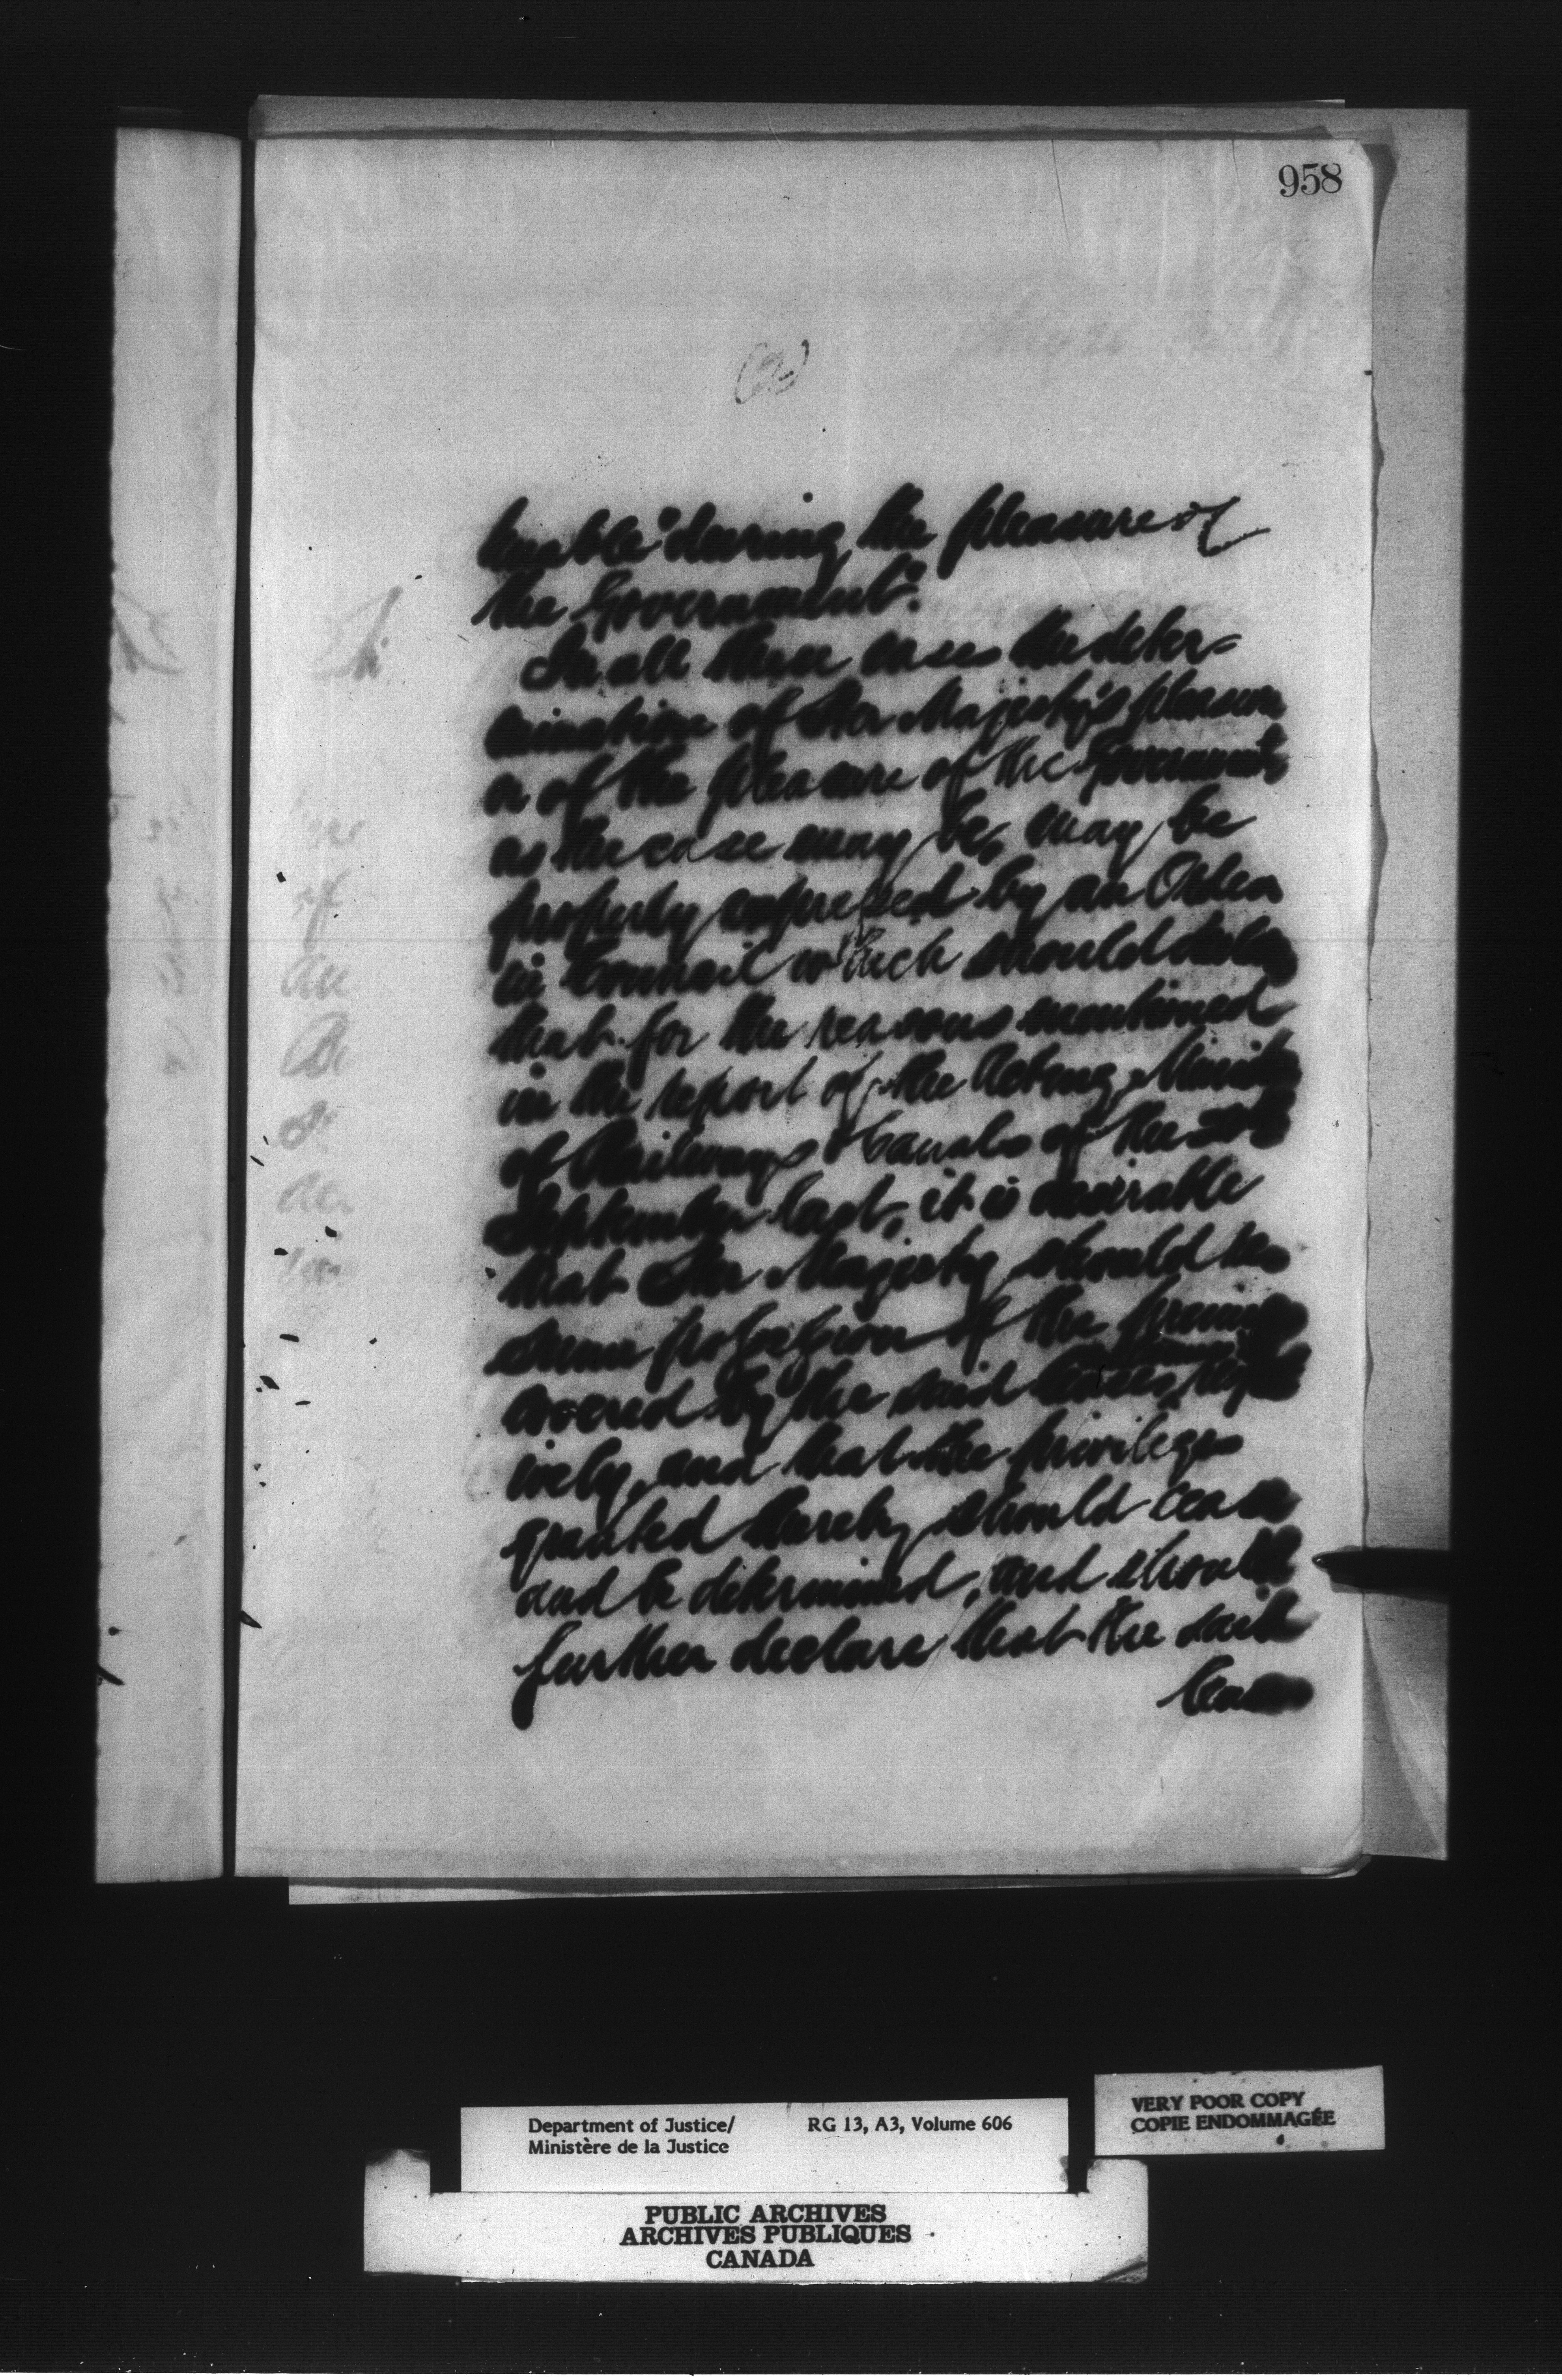 958
(2)
tenable "during the pleasure of
the Government".
In all these cases the deter=
mination of Her Majesty's pleasure
or of the pleasure of the Government,
as the case may be, may be
properly expressed by an Order
in Council which should declare
that for the reasons mentioned
in the report of the Acting Minister
of Railways & Canals of the
September last, it is desirable
that Her Majesty should re
sume possession of the premises
covered by the said leases,
ively, and that the privileges
granted thereby should cease
and be determined, and should
further declare that the said
leases
Department of Justice/ RG 13, A3, Volume 606
Ministère de la Justice
VERY POOR COPY
COPIE ENDOMMAGÉE
PUBLIC ARCHIVES
ARCHIVES PUBLIQUES
CANADA